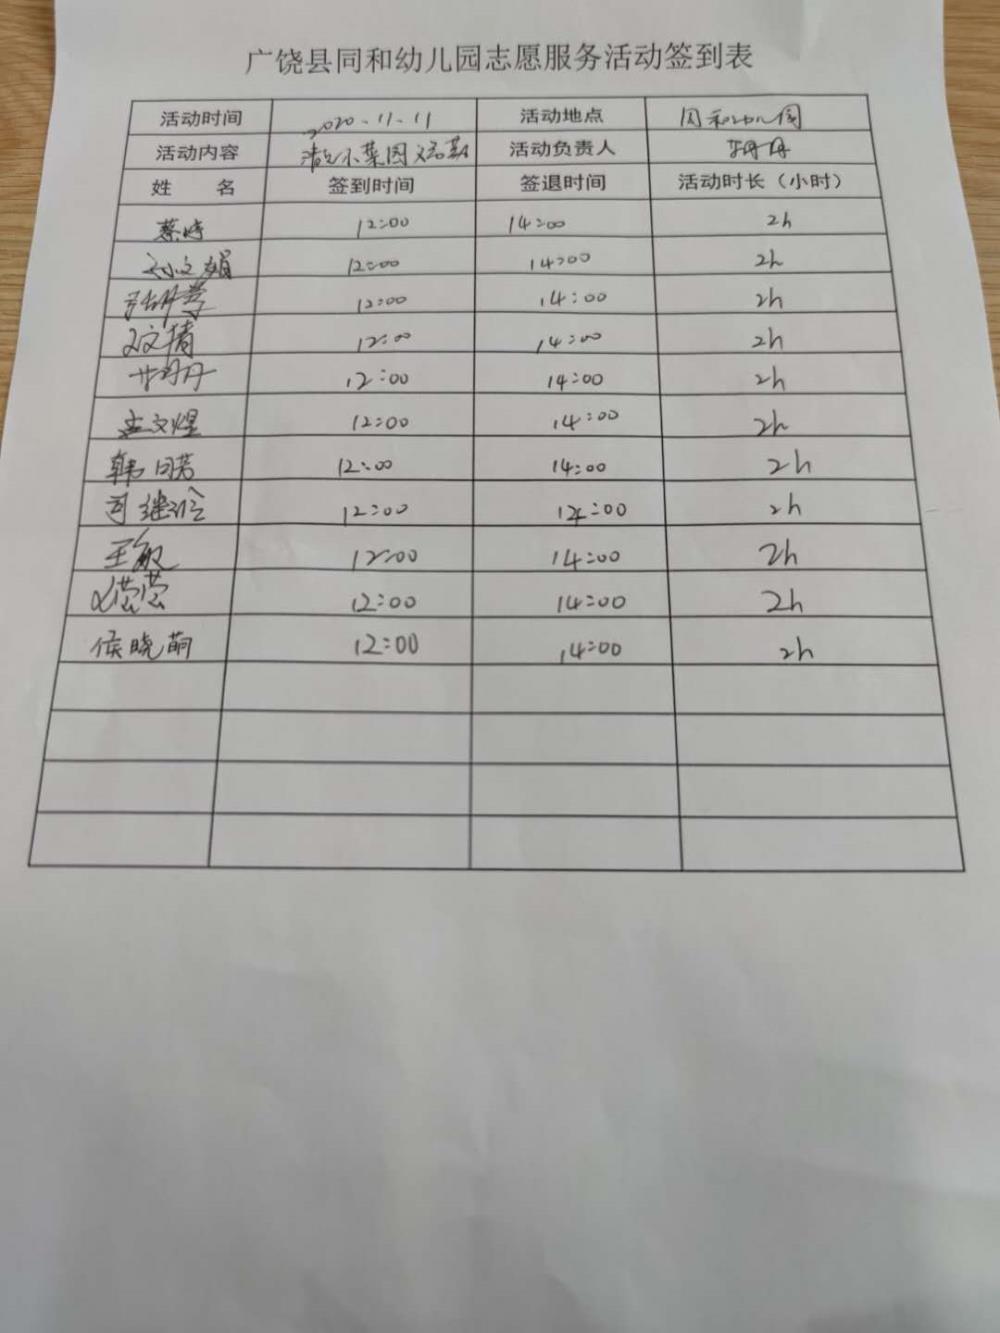 广饶县同和幼儿园志愿服务活动签到表
活动时间 2020.11.11 活动地点 同和幼儿园
活动内容 小菜园 活动负责人 丹丹
姓 名 签到时间 签退时间 活动时长（小时）
蔡婷 12:00 14:00 2h
孙文娟 12:00 14:00 2h
12:00 14:00 2h
文倩 12:00 14:00 2h
丹丹 12:00 14:00 2h
孟文煜 12:00 14:00 2h
韩 12:00 14:00 2h
司继 12:00 14:00 2h
王敏 12:00 14:00 2h
莹莹 12:00 14:00 2h
侯晓萌 12:00 14:00 2h